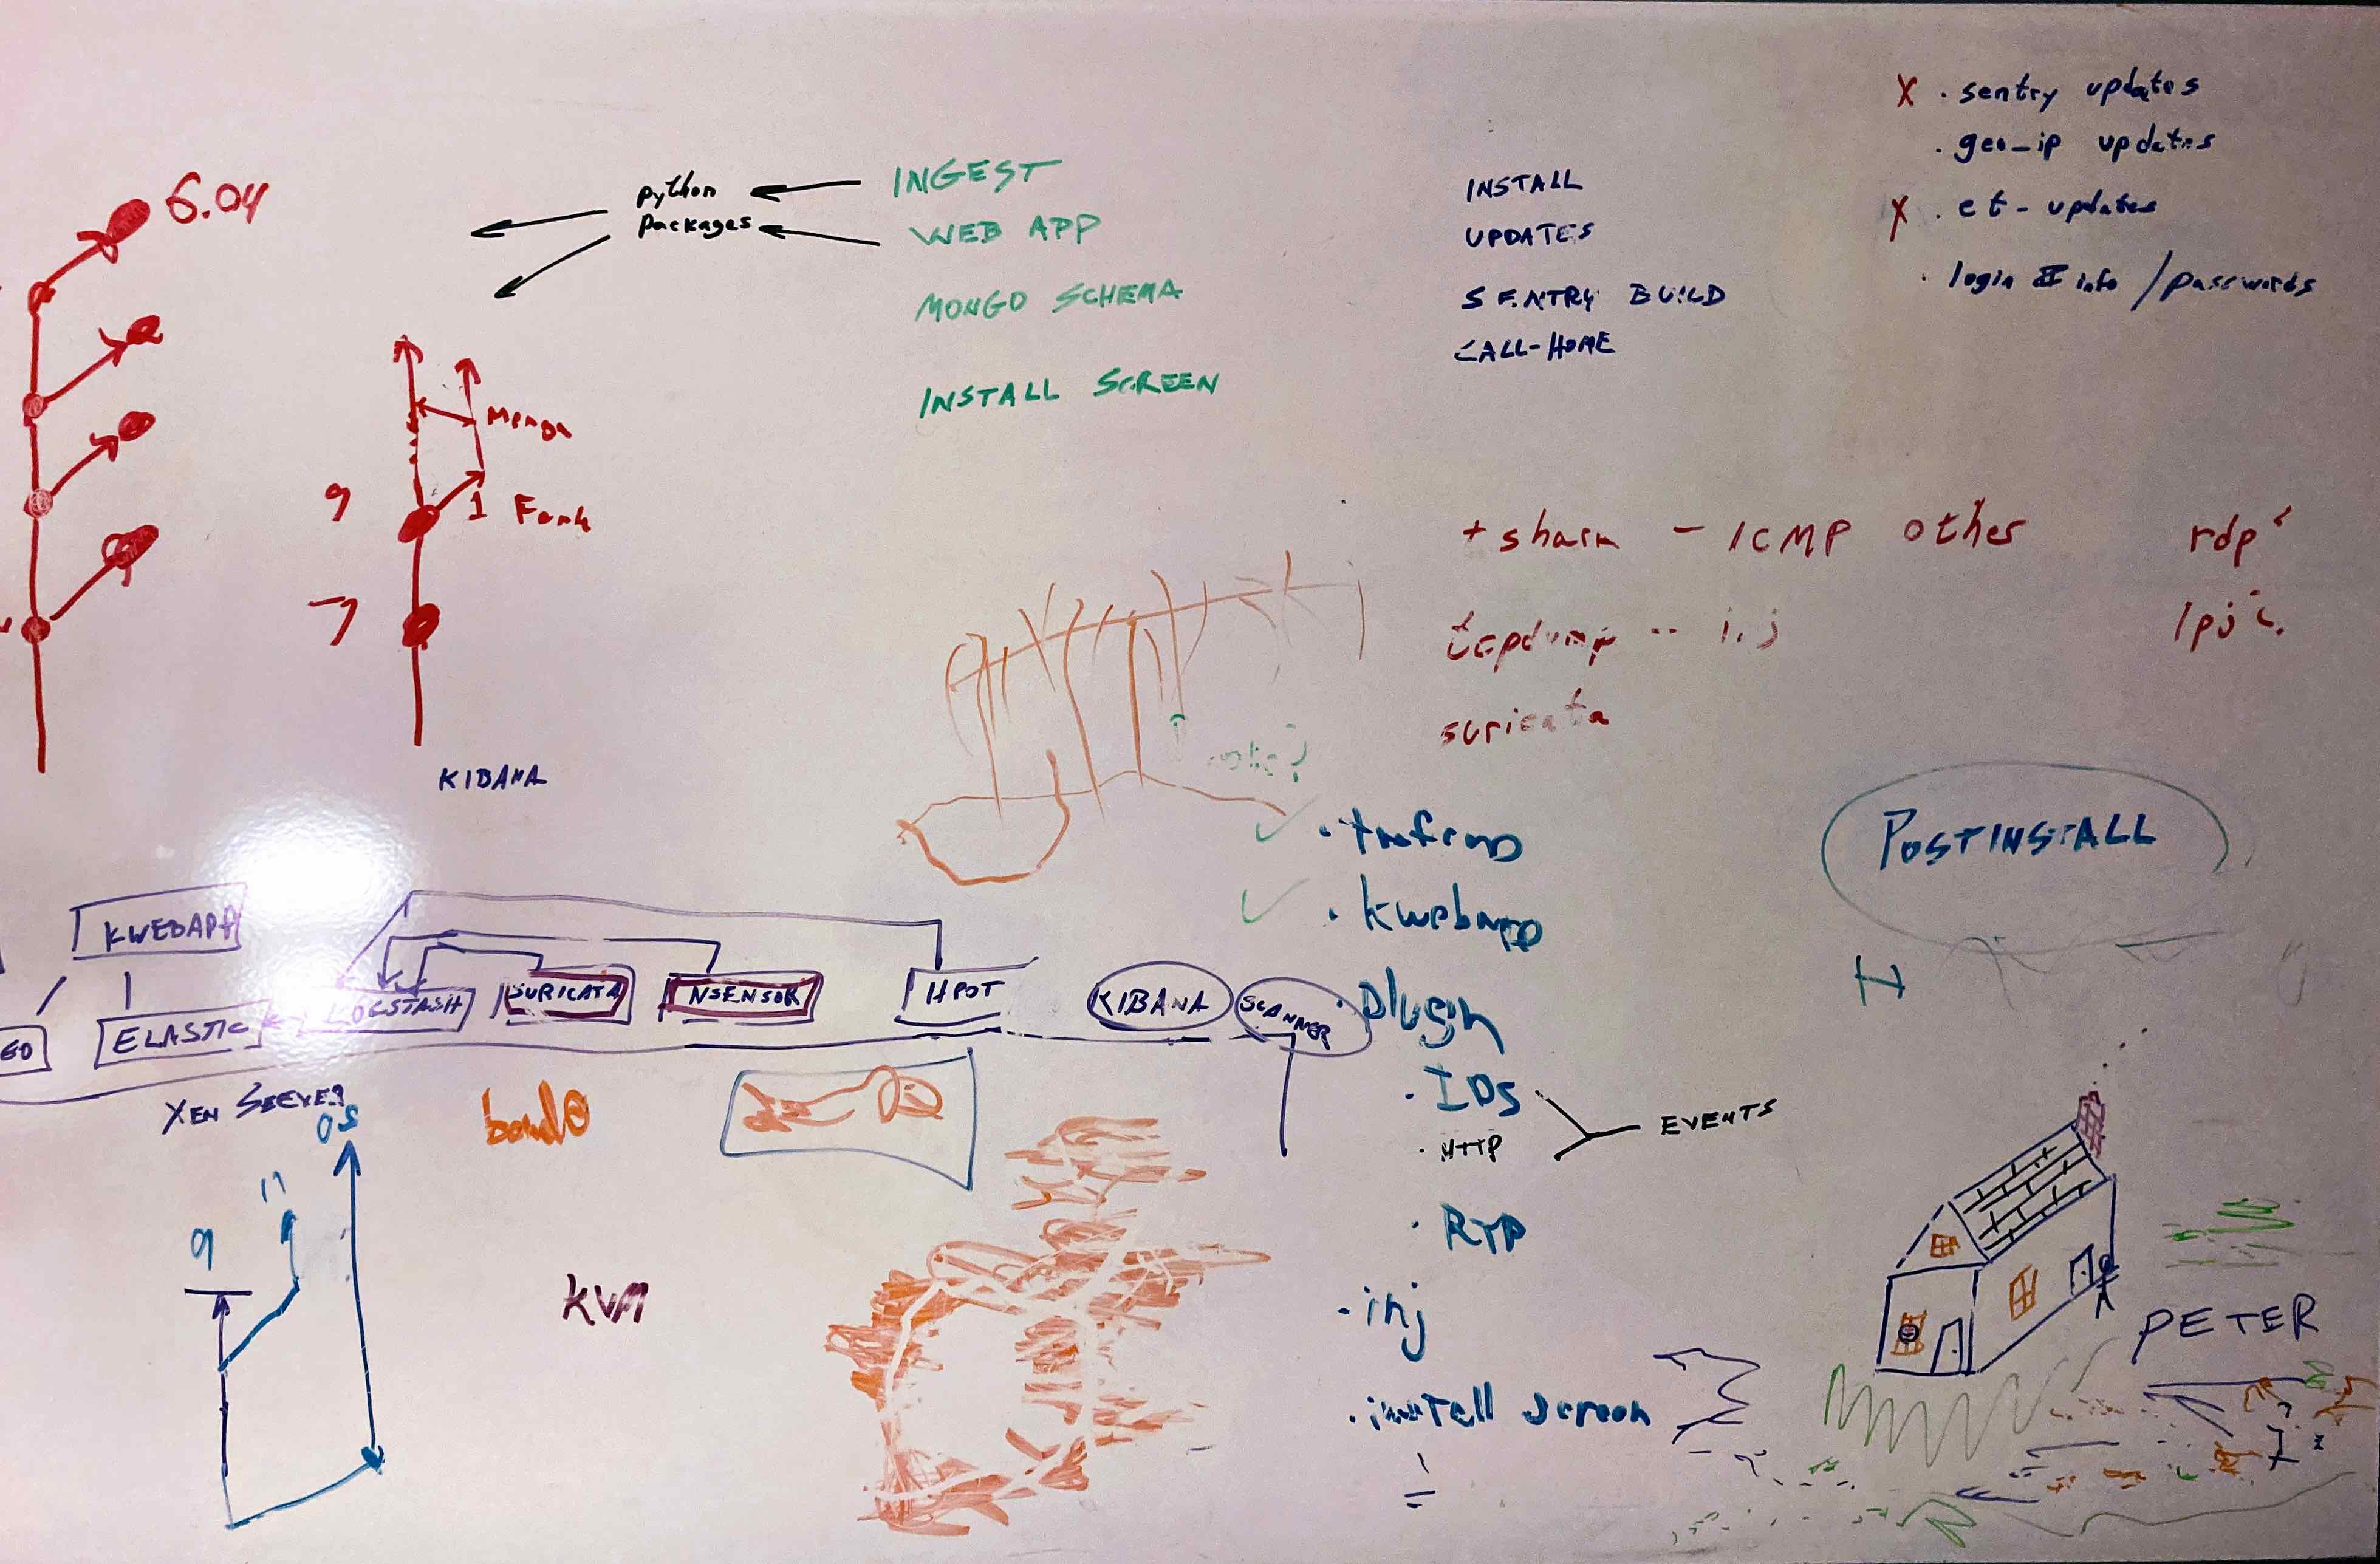 6.04
python
packages
INGEST
WEB APP
MONGO SCHEMA
INSTALL SCREEN
INSTALL
UPDATES
SENTRY BUILD
CALL-HOME
X . sentry updates
. geo-ip updates
X . et- updates
. login info / passwords
9
1
7
KIBANA
- ICMP other
rdp
tcpdump
suricata
. kwebapp
plugin
. IDS
. HTTP
EVENTS
. RTP
. inj
. install screen
POSTINSTALL
KWEBAPP
ELASTIC
LOGSTASH
SURICATA
NSENSOR
HPOT
KIBANA
SCANNER
XEN SERVER
OS
11
9
KVM
PETER